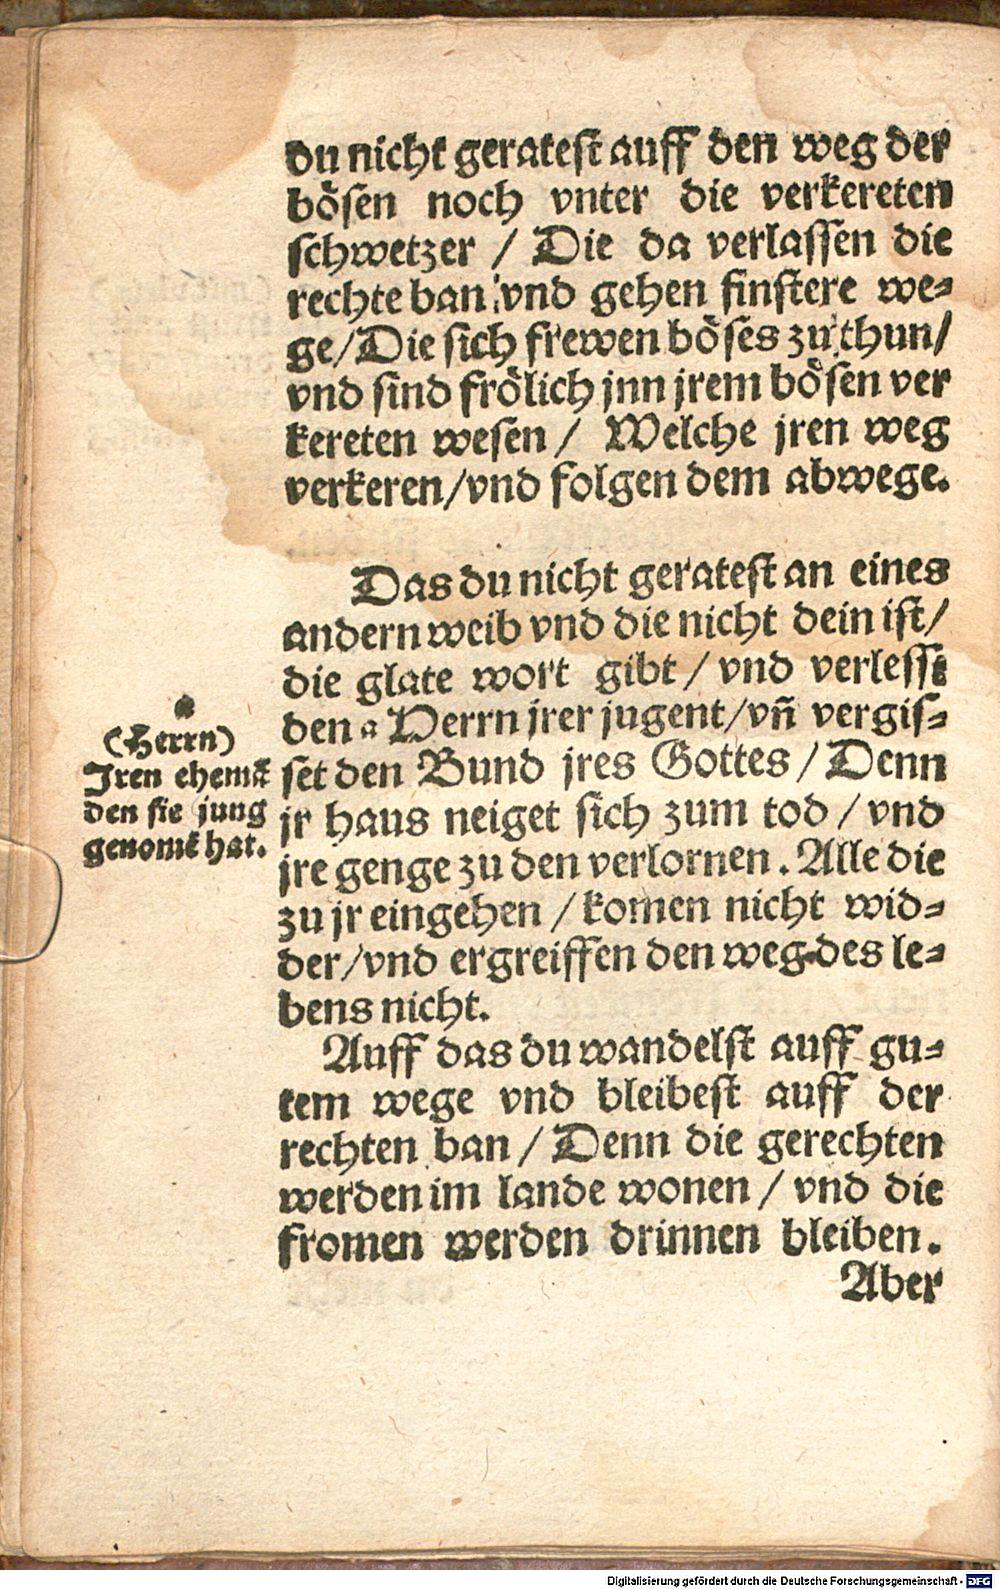 du nicht geratest auff den weg der
bösen noch vnter die verkereten
schwetzer / Die da verlassen die
rechte ban vnd gehen finstere we-
ge/Die sich frewen böses zu thun/
vnd sind frölich jnn jrem bösen ver
kereten wesen / Welche jren weg
verkeren/vnd folgen dem abwege.
Das du nicht geratest an eines
andern weib vnd die nicht dein ist/
die glate wort gibt / vnd verlesst
den a Herrn jrer jugent/vñ vergis-
set den Bund jres Gottes / Denn
jr haus neiget sich zum tod / vnd
jre genge zu den verlornen. Alle die
zu jr eingehen / komen nicht wid-
der/vnd ergreiffen den weg des le-
bens nicht.
Auff das du wandelst auff gu-
tem wege vnd bleibest auff der
rechten ban / Denn die gerechten
werden im lande wonen / vnd die
fromen werden drinnen bleiben.
Aber
a
(Herrn)
Jren ehemã
den sie jung
genomẽ hat.
Digitalisierung gefördert durch die Deutsche Forschungsgemeinschaft - DFG